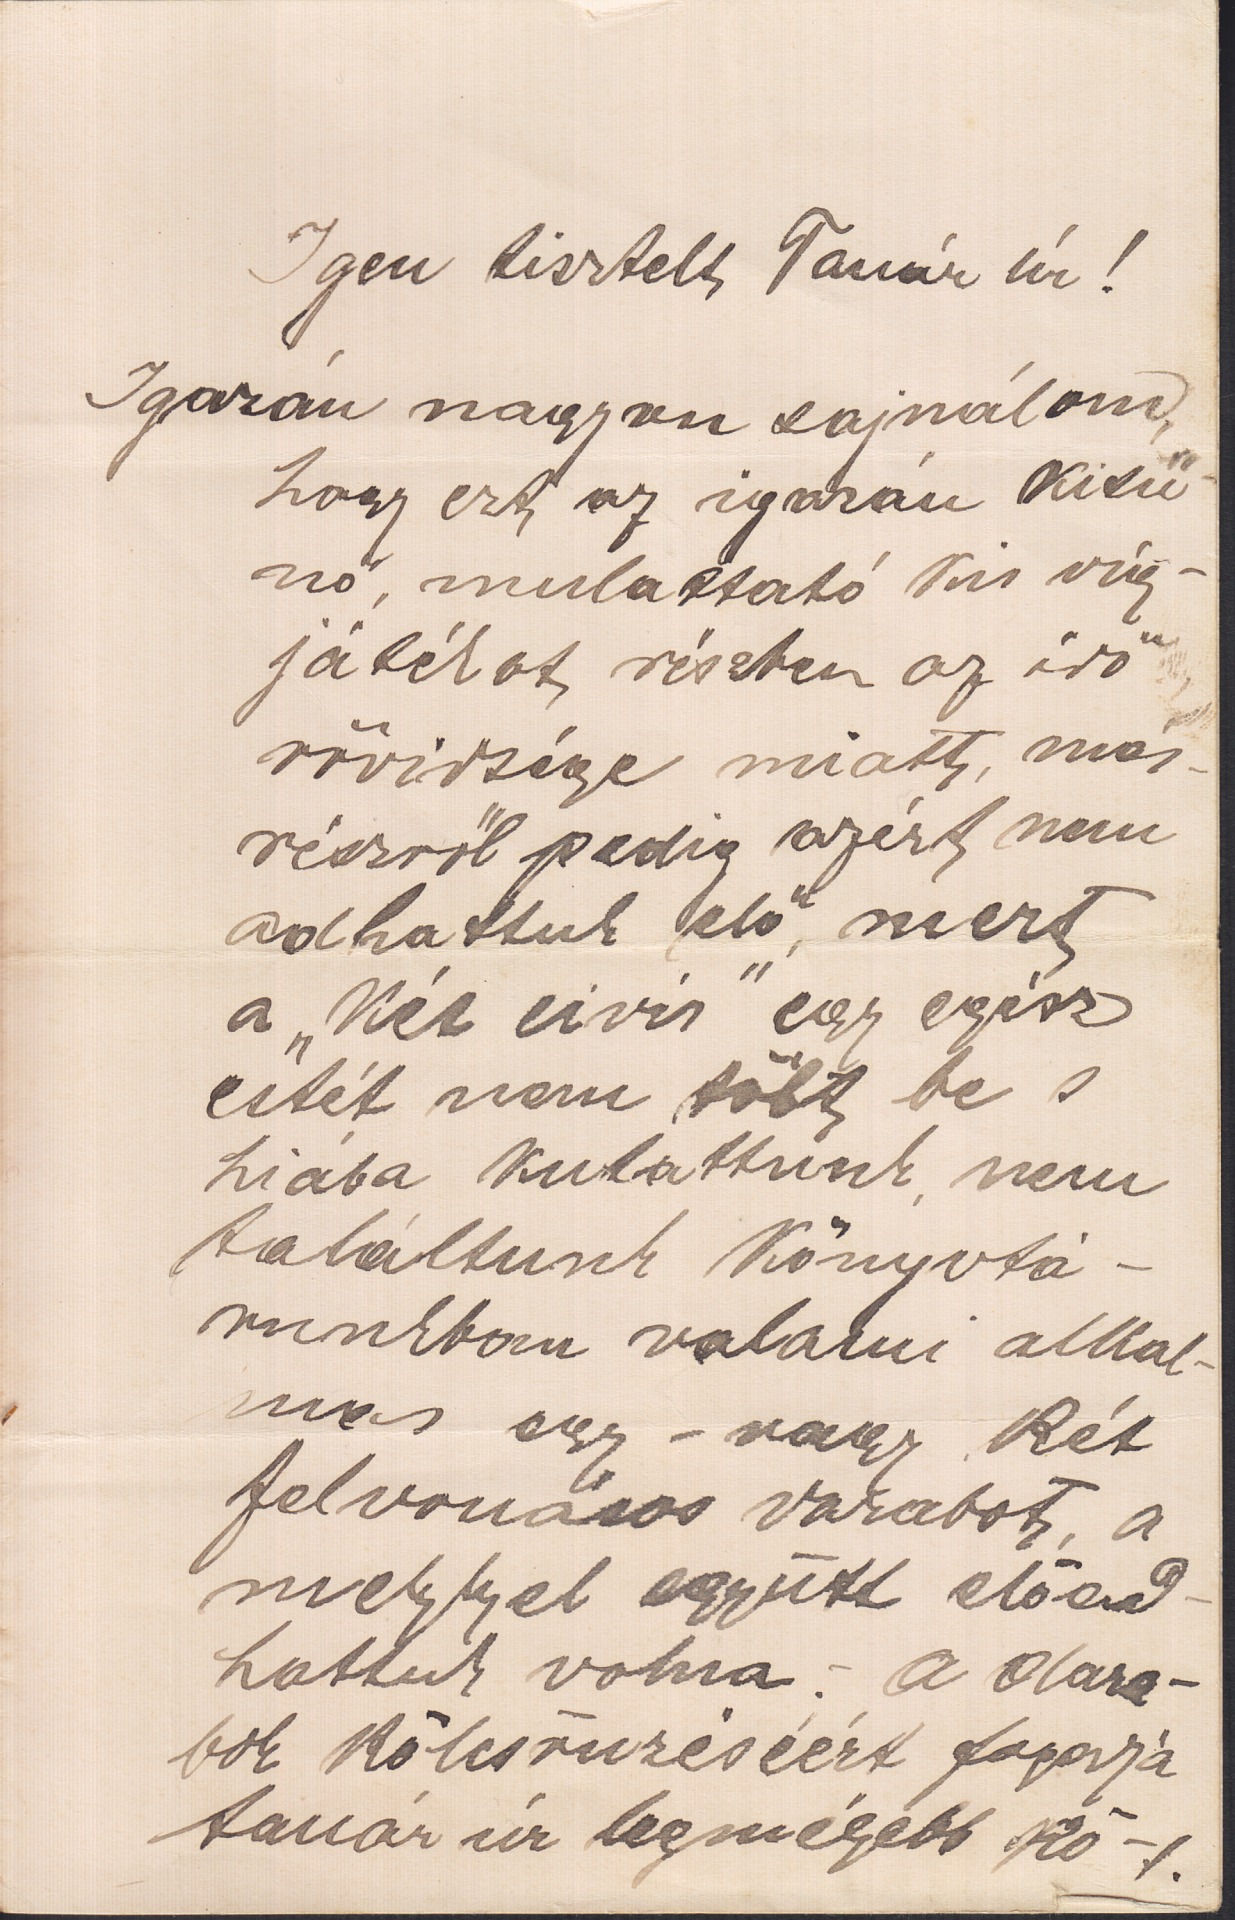 Igen tisztelt Tanár úr!
Igazán nagyon sajnálom,
hogy ezt az igazán kitü-
nő, mulattató kis víg-
játékot, részben az idő
rövidsége miatt, más-
részről pedig azért nem
adhattuk elő, mert
a „Két civis" egy egész
estét nem tölt be s
hiába kutattunk, nem
találtunk könyvtá-
runkban valami alkal-
mas egy - vagy két
felvonásos darabot, a
melylyel együtt előad-
hattuk volna. - A dara-
bok kölcsönzéséért fogadja
tanár úr legmégebb kö-/.